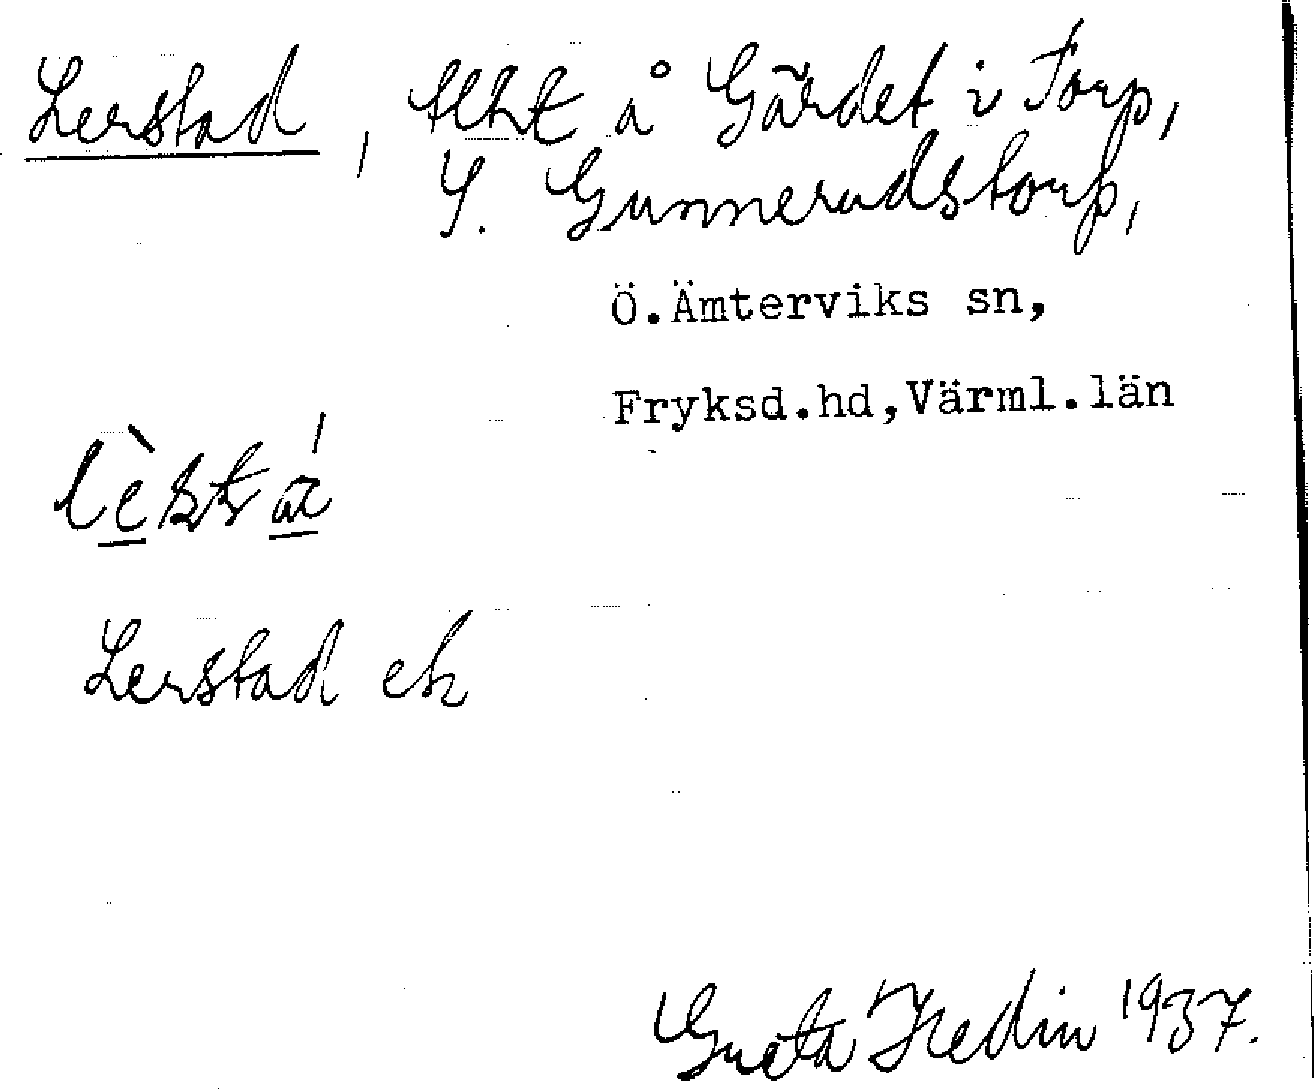 Lerstad, tlht å Gärdet i Torp,
Y. Gunnerudstorp,
Ö.Ämterviks sn,
Fryksd.hd,Värml.län
Lerstad ek
Greta Hedin 1937.